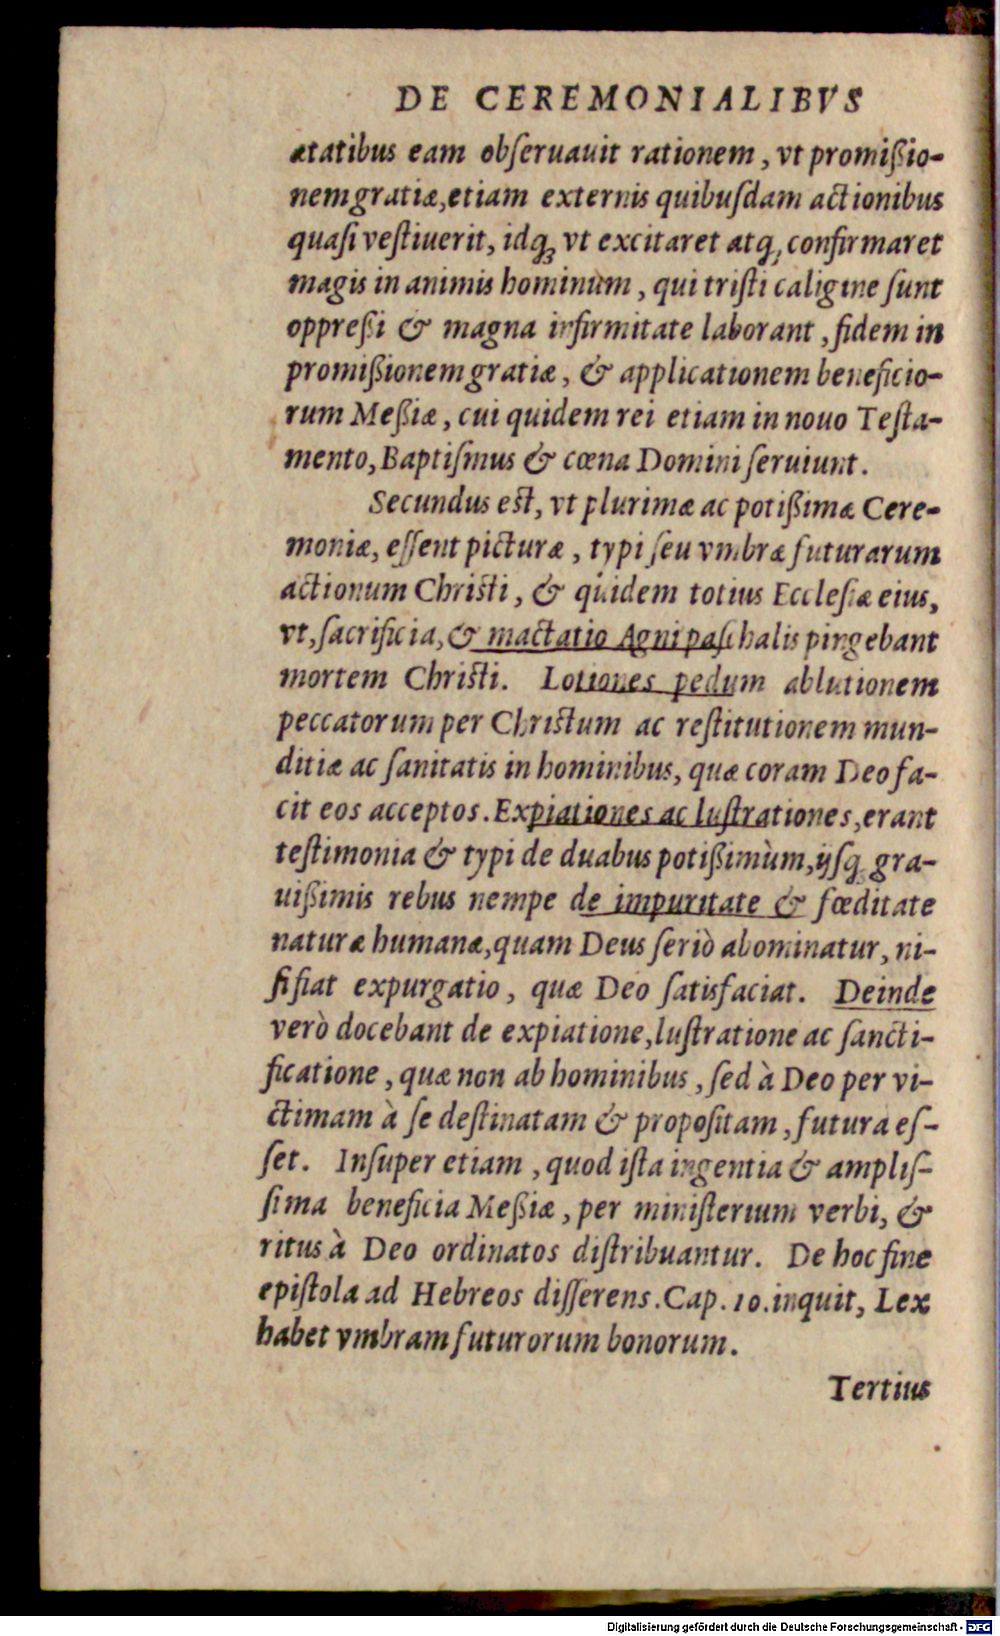 DE CEREMONIALIBVS
ætatibus eam obſeruauit rationem, vt promißio-
nem gratiæ, etiam externis quibuſdam actionibus
quaſi veſtiuerit, idq́; vt excitaret atq́; confirmaret
magis in animis hominum, qui triſti caligine ſunt
oppreßi & magna infirmitate laborant, fidem in
promißionem gratiæ, & applicationem beneficio-
rum Meßiæ, cui quidem rei etiam in nouo Teſta-
mento, Baptiſmus & cœna Domini ſeruiunt.
Secundus est, vt plurimæ ac potißimæ Cere-
moniæ, eſſent picturæ, typi ſeu vmbræ futurarum
actionum Chriſti, & quidem totius Eccleſiæ eius,
vt, ſacrificia, & mactatio Agni paſchalis pingebant
mortem Chriſti. Lotiones pedum ablutionem
peccatorum per Chriſtum ac reſtitutionem mun-
ditiæ ac ſanitatis in hominibus, quæ coram Deo fa-
cit eos acceptos. Expiationes ac luſtrationes, erant
teſtimonia & typi de duabus potißimùm, ijſq́; gra-
uißimis rebus nempe de impuritate & fœditate
naturæ humanæ, quam Deus ſeriò abominatur, ni-
ſi fiat expurgatio, quæ Deo ſatisfaciat. Deinde
verò docebant de expiatione, luſtratione ac ſancti-
ficatione, quæ non ab hominibus, ſed à Deo per vi-
ctimam à ſe deſtinatam & propoſitam, futura eſ-
ſet. Inſuper etiam, quod iſta ingentia & ampliſ-
ſima beneficia Meßiæ, per miniſterium verbi, &
ritus à Deo ordinatos diſtribuantur. De hoc fine
epiſtola ad Hebreos diſſerens. Cap. 10. inquit, Lex
habet vmbram futurorum bonorum.
Tertius
Digitalisierung gefördert durch die Deutsche Forschungsgemeinschaft - DFG